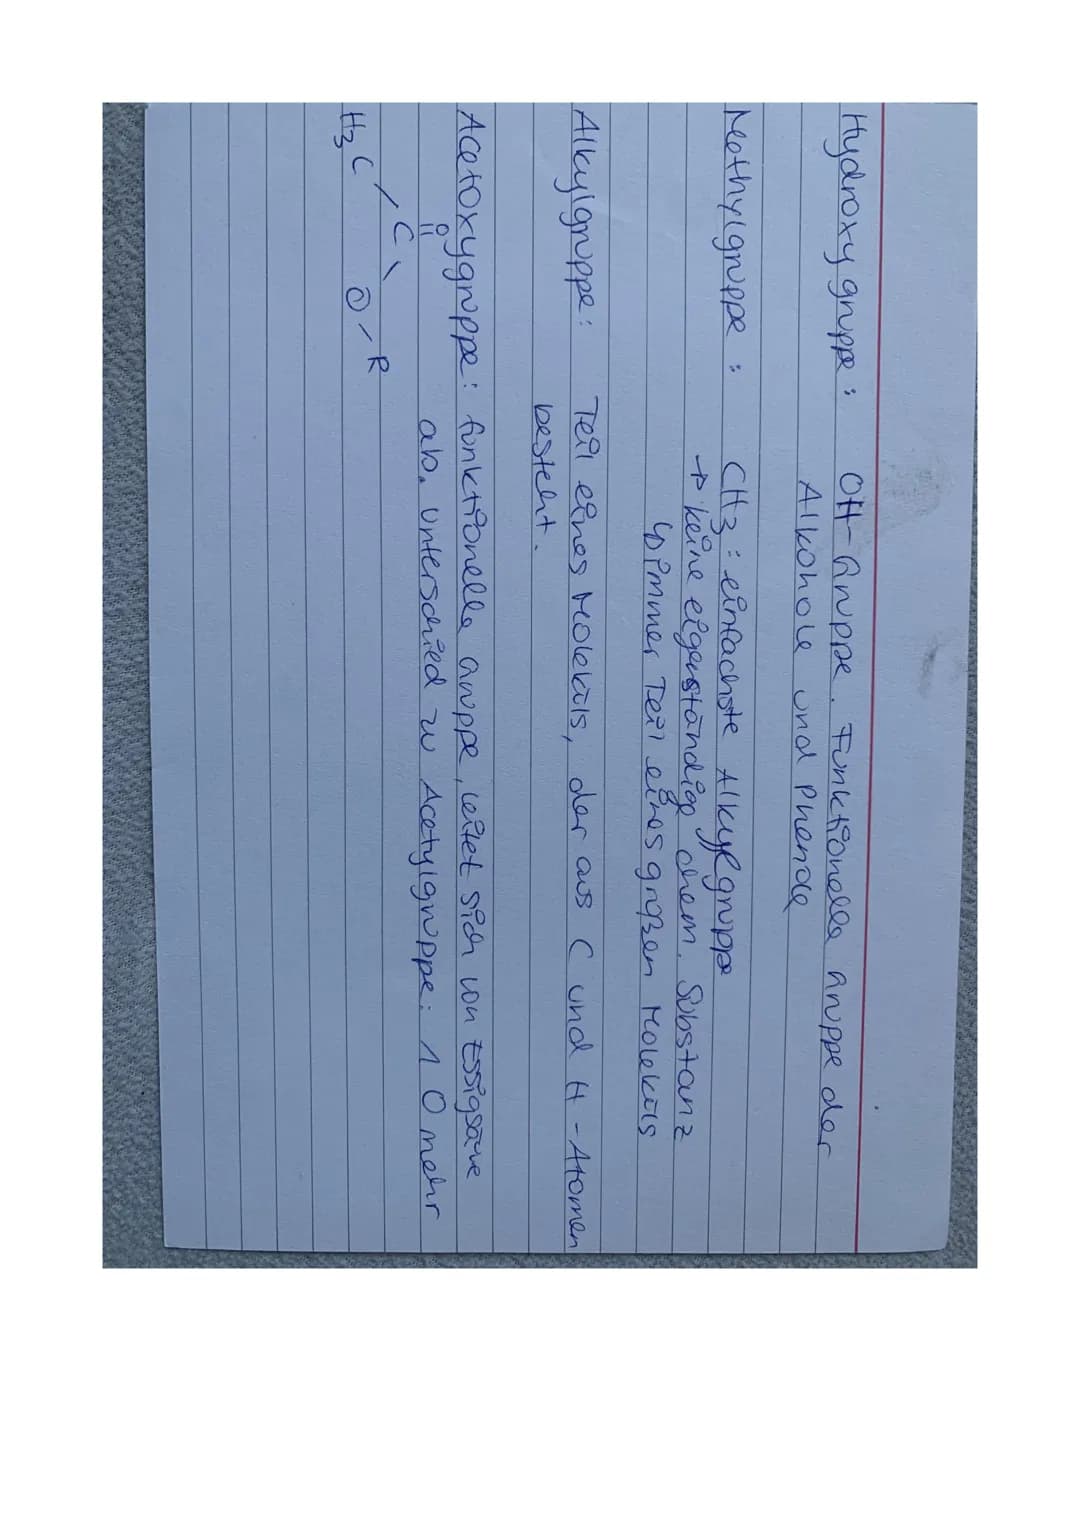 Hydroxygruppe: OH-Gruppe. Funktionelle Gruppe der
Alkohole und Phenole
Methylgruppe: CH3: einfachste Alkylgruppe
→ keine eigenständige chem. Substanz
↳ immer Teil eines großen Moleküls
Alkylgruppe: Teil eines Moleküls, der aus C und H-Atomen
besteht.
Acetoxygruppe: funktionelle Gruppe, leitet sich von Essigsäure
ab. Unterschied zu Acetylgruppe: 1 O mehr
O
C
H3C O-R